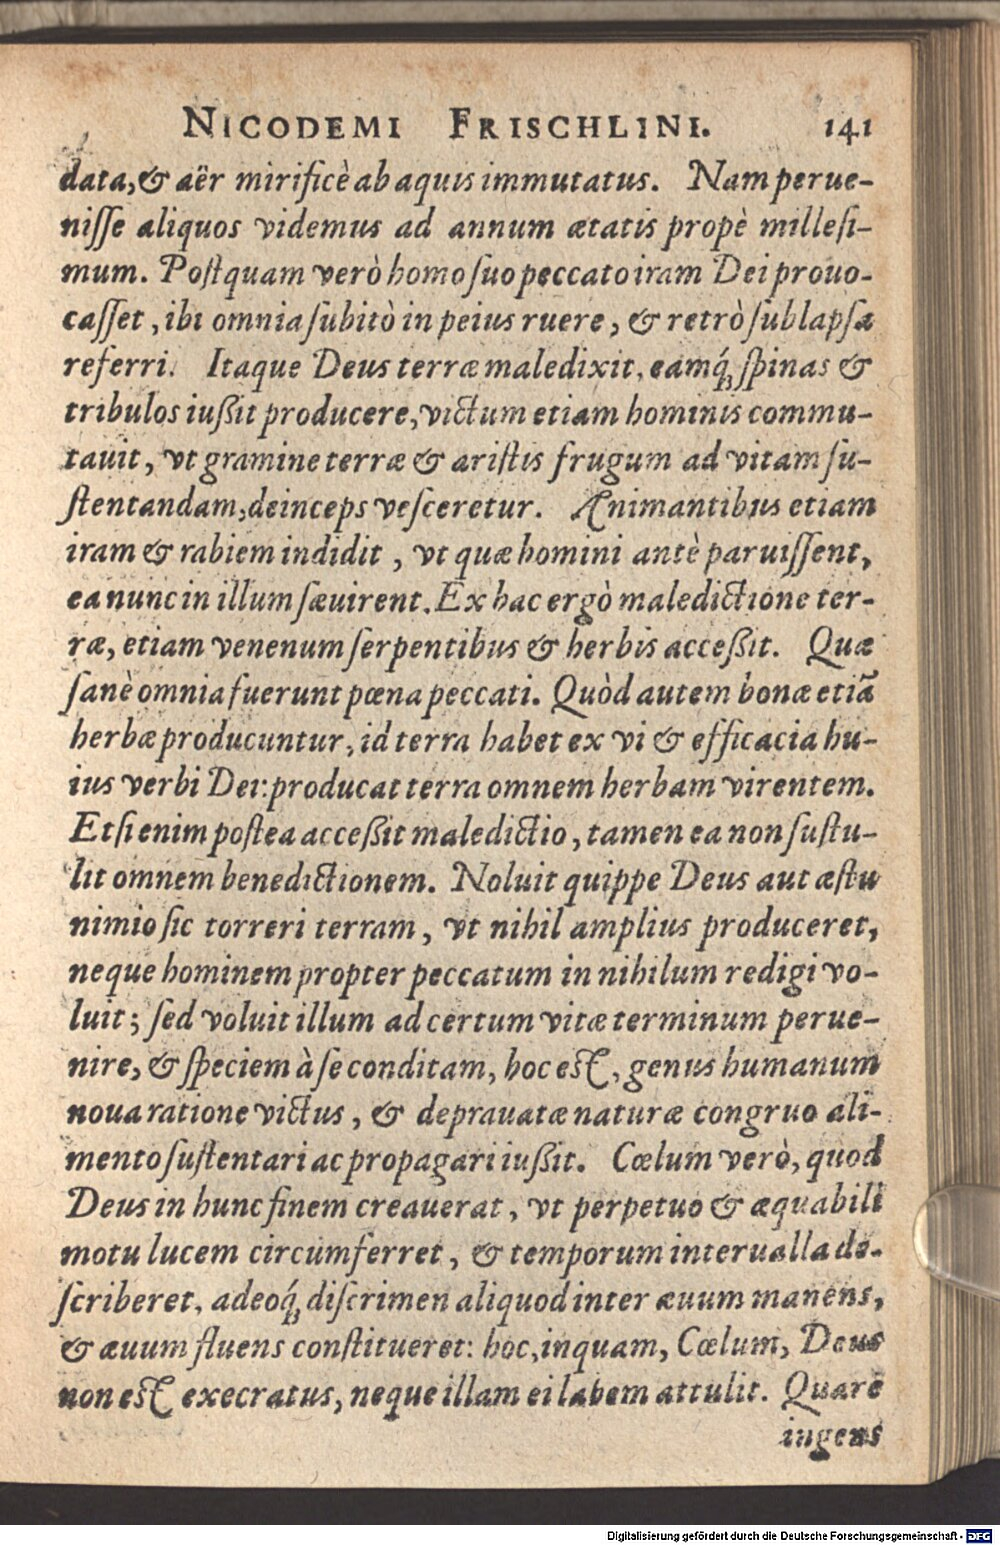 NICODEMI FRISCHLINI. 141
data, & aër mirificè ab aquis immutatus. Nam perue-
niſſe aliquos videmus ad annum ætatis propè milleſi-
mum. Poſtquam verò homo ſuo peccato iram Dei prouo-
caſſet, ibi omnia ſubitò in peius ruere, & retrò ſublapſa
referri. Itaque Deus terræ maledixit, eamq́; ſpinas &
tribulos iußit producere, victum etiam hominis commu-
tauit, vt gramine terræ & ariſtis frugum ad vitam ſu-
ſtentandam, deinceps veſceretur. Animantibus etiam
iram & rabiem indidit, vt quæ homini antè paruiſſent,
ea nunc in illum ſæuirent. Ex hac ergò maledictione ter-
ræ, etiam venenum ſerpentibus & herbis acceßit. Quæ
ſanè omnia fuerunt pœna peccati. Quòd autem bonæ etiã
herbæ producuntur, id terra habet ex vi & efficacia hu-
ius verbi Dei: producat terra omnem herbam virentem.
Etſi enim poſtea acceßit maledictio, tamen ea non ſuſtu-
lit omnem benedictionem. Noluit quippe Deus aut æſtu
nimio ſic torreri terram, vt nihil amplius produceret,
neque hominem propter peccatum in nihilum redigi vo-
luit; ſed voluit illum ad certum vitæ terminum perue-
nire, & ſpeciem à ſe conditam, hoc eſt, genus humanum
noua ratione victus, & deprauatæ naturæ congruo ali-
mento ſuſtentari ac propagari iußit. Cœlum verò, quod
Deus in hunc finem creauerat, vt perpetuo & æquabili
motu lucem circumferret, & temporum interualla de-
ſcriberet, adeoq́; diſcrimen aliquod inter æuum manens,
& æuum fluens conſtitueret: hoc, inquam, Cœlum, Deus
non eſt execratus, neque illam ei labem attulit. Quare
ingens
Digitalisierung gefördert durch die Deutsche Forschungsgemeinschaft - DFG